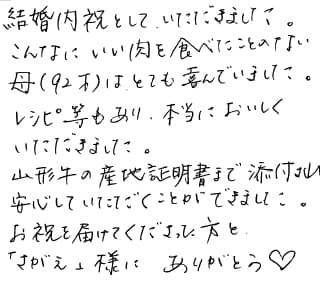 結婚内祝としていただきました。
こんなにいい肉を食べたことのない
母(92才)はとても喜んでいました。
レシピ等もあり、本当においしく
いただきました。
山形牛の産地証明書まで添付され
安心していただくことができました。
お祝を届けてくださった方と
「さがえ」様に ありがとう♡